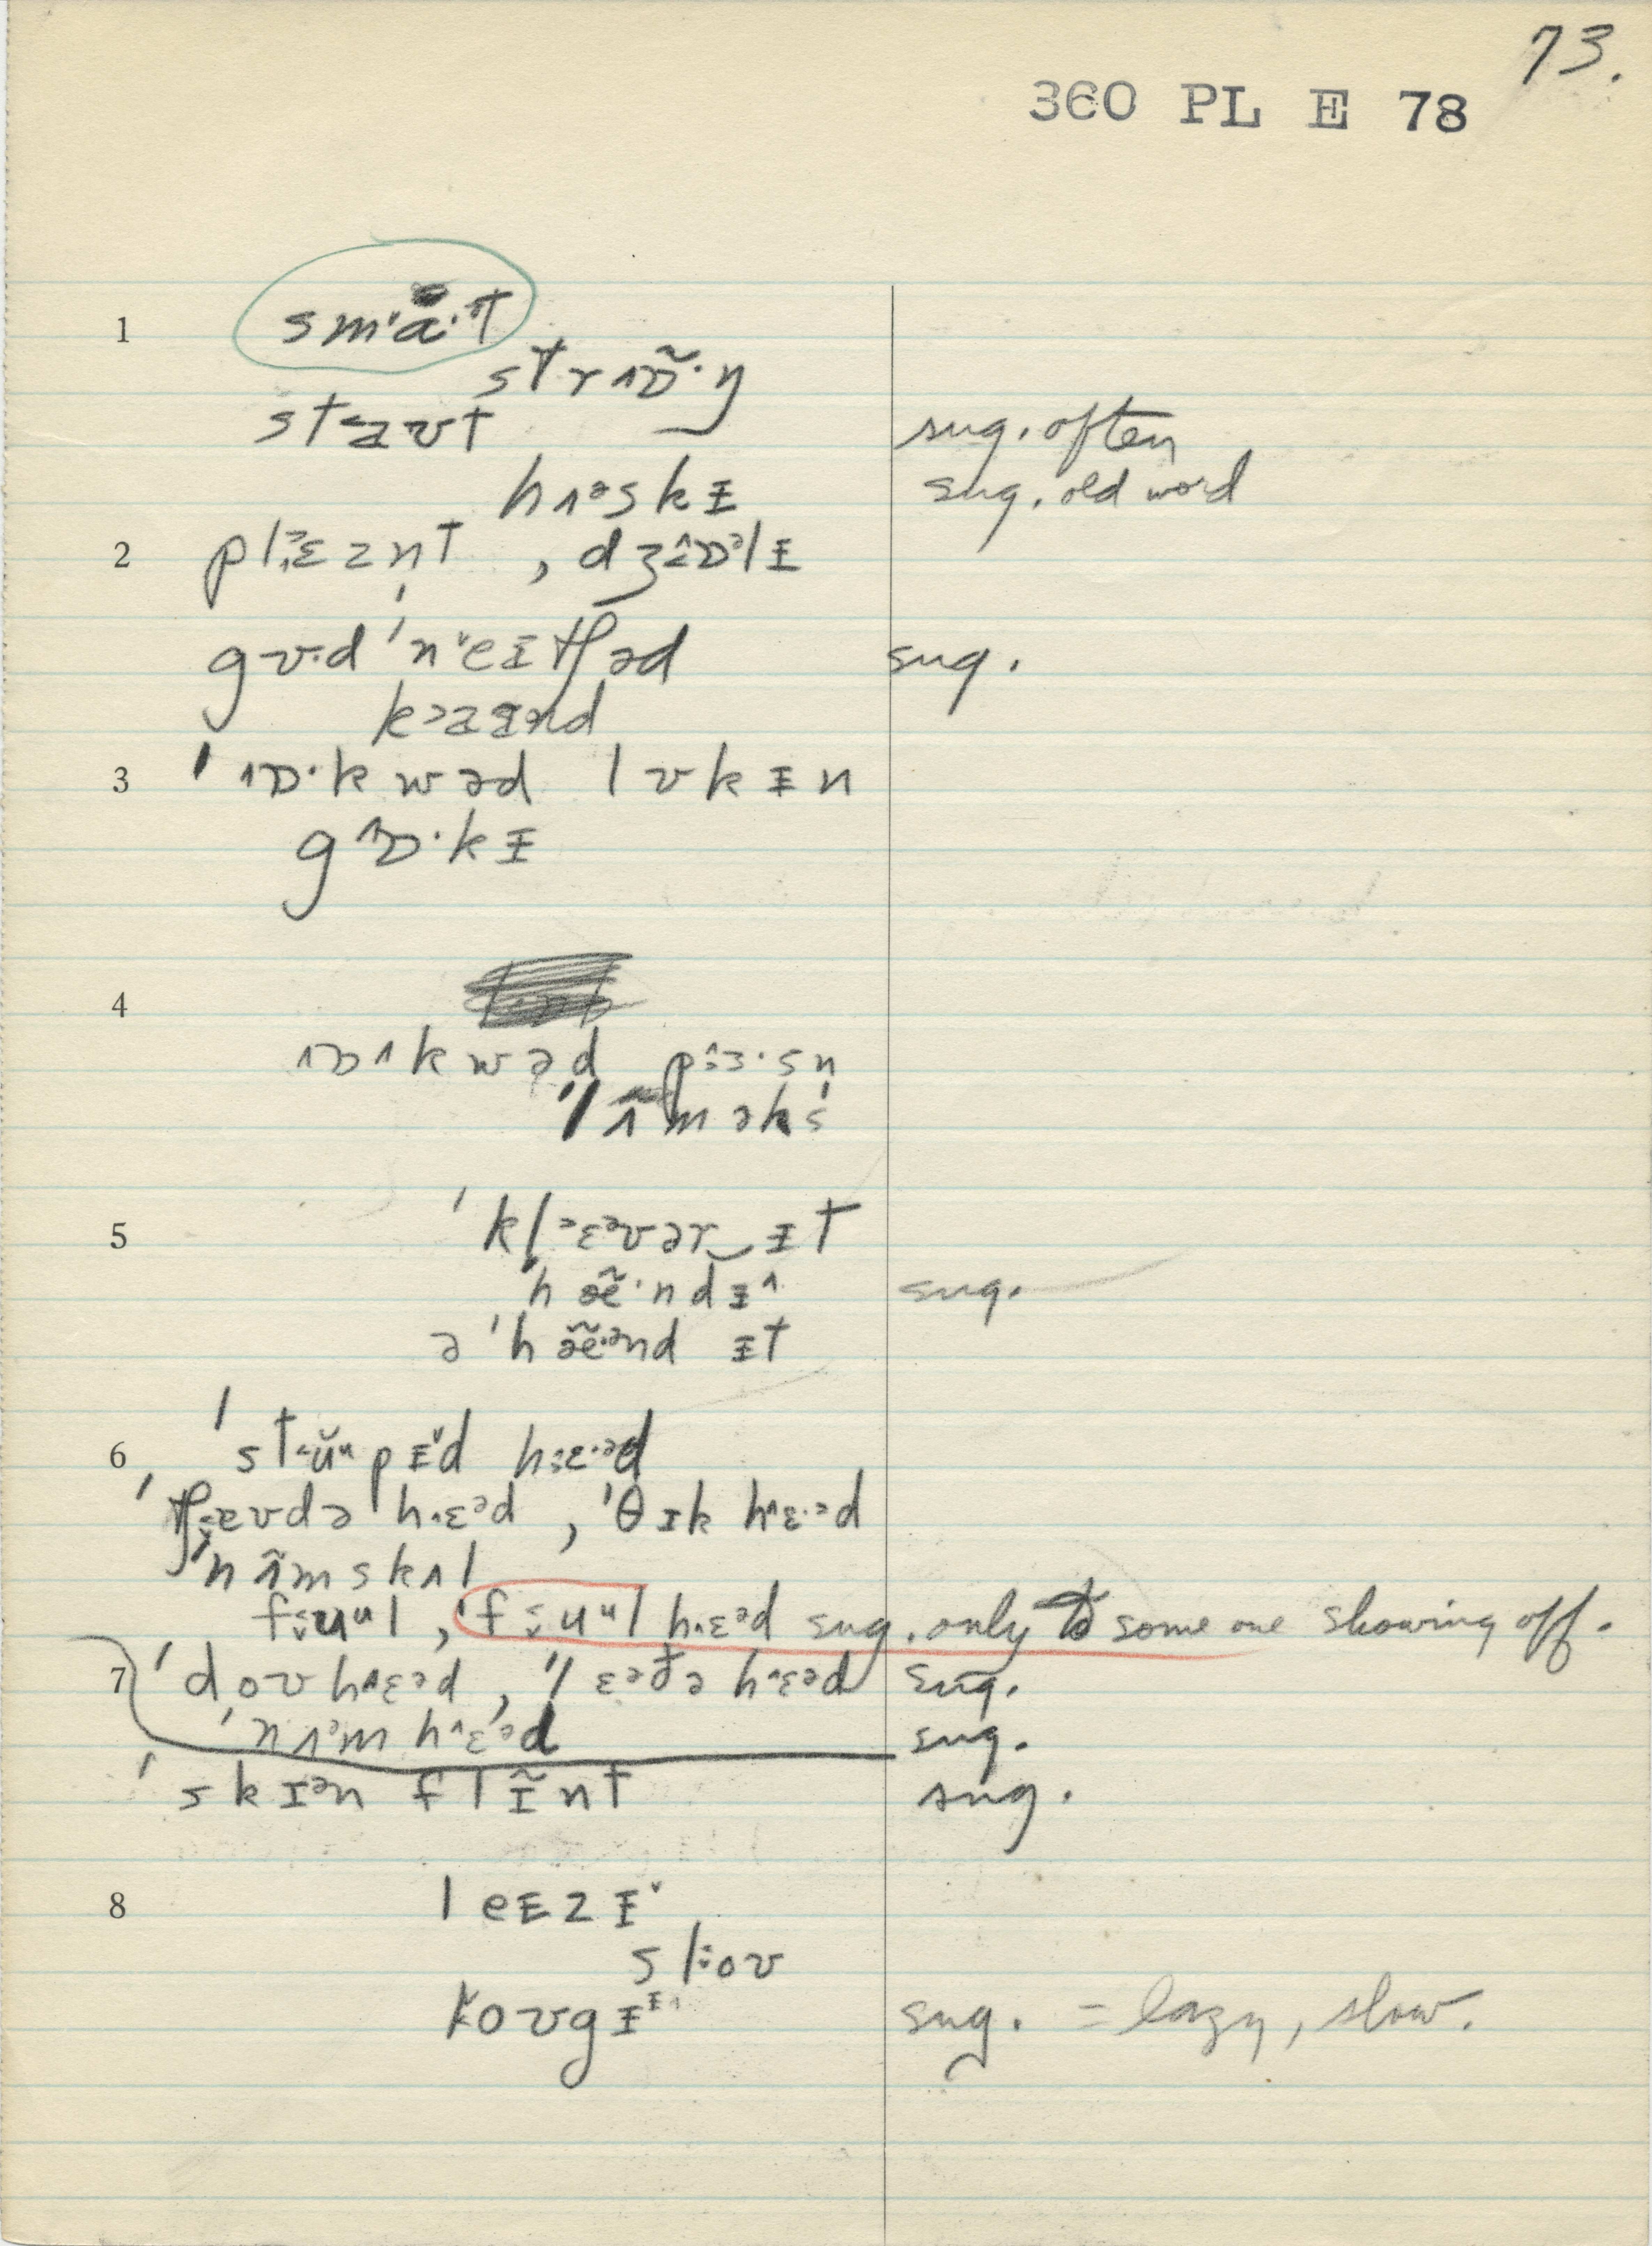 73.
360 PL E 78
1 smˈa·t
strʌɒ̃·ŋ
staʊt sug. often
hʌᵊskɪ sug. old word
2 plɛzn̩t , dʒɒᵊlɪ
gʊ·d ˈneɪtʃəd sug.
kaɪnd
3 ˈɒ·kwəd lʊkɪn
gɒ·kɪ
4
ɒkwəd pɜ·sn̩
ˈlʌ̃məks
5 ˈklɛᵊvər‿ɪt
ˈhæ̃·ndɪ sug.
ə ˈhæ̃·ᵊnd ɪt
6 ˈstuᵘpɪd hɛ·ᵊd
ˈtʃaʊdə hɛᵊd , ˈθɪk hɛ·ᵊd
ˈnʌ̃mskʌl
fuᵘl , ˈfuᵘl hɛᵊd sug. only to some one showing off.
7 ˈdoʊhɛᵊd , ˈlɛᵊðə hɛᵊd sug.
ˈnʌᵊm hɛᵊd sug.
ˈskɪᵊn flɪ̃nt sug.
8 leɪzɪ
sloʊ
loʊgɪ sug. = lazy, slow.